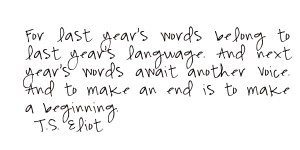 For last year's words belong to
last year's language. And next
year's words await another voice.
And to make an end is to make
a beginning.
T.S. Eliot